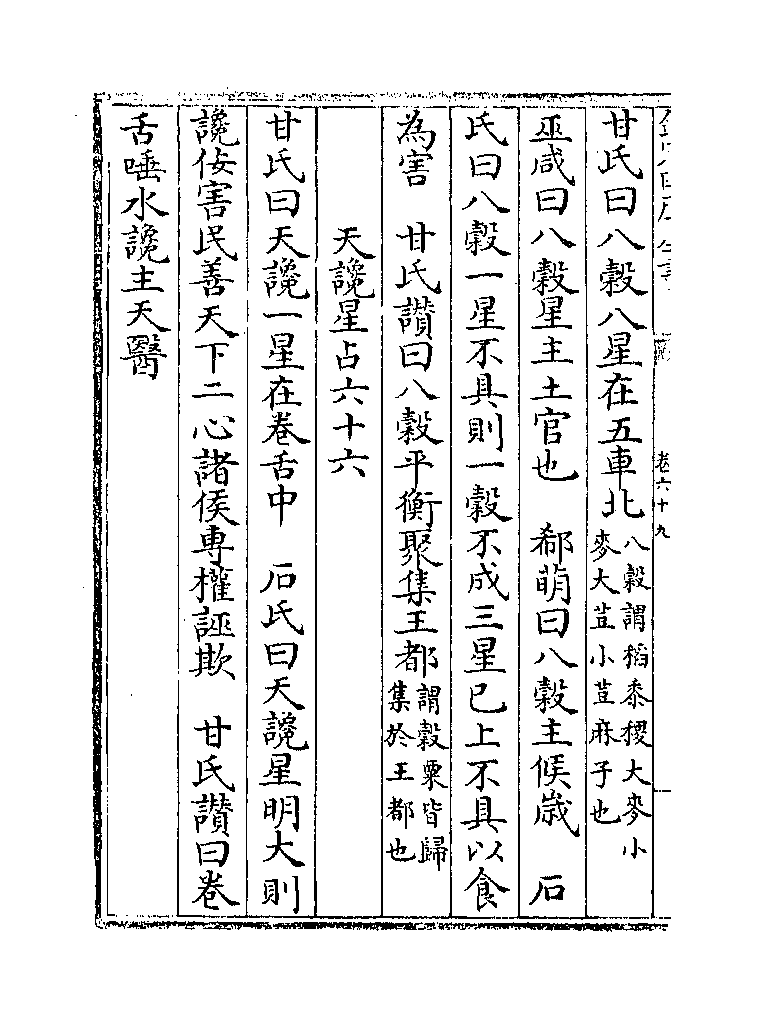 卷六十九
甘氏曰八穀八星在五車北八穀謂稻黍稷大麥小麥大荳小荳麻子也
巫咸曰八穀星主土官也　郗萌曰八穀主候歳　石
氏曰八穀一星不具則一穀不成三星已上不具以食
為害　甘氏讃曰八穀平衡聚集王都謂穀粟皆歸集於王都也
天讒星占六十六
甘氏曰天讒一星在卷舌中　石氏曰天讒星明大則
讒佞害民善天下二心諸侯専權誣欺　甘氏讃曰卷
舌唾水讒主天醫